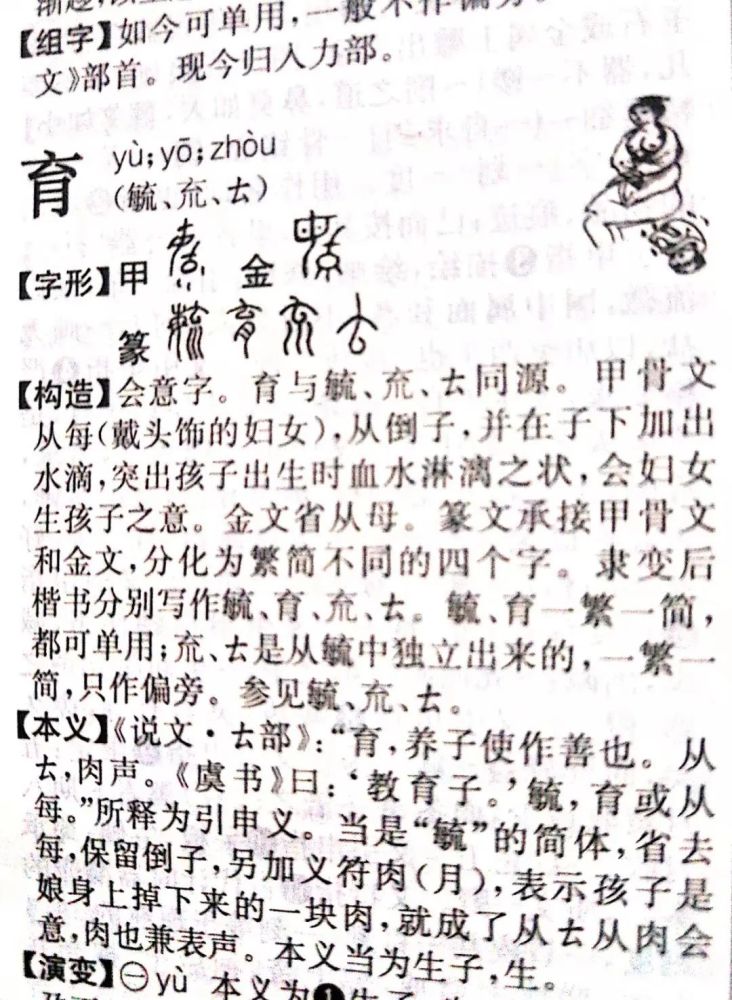 【组字】如今可单用，一般不作偏旁。
文》部首。现今归入力部。
育 yù；yō；zhòu
（毓、㐬、𠫓）
【字形】甲 金
篆
【构造】会意字。育与毓、㐬、𠫓同源。甲骨文
从每（戴头饰的妇女），从倒子，并在子下加出
水滴，突出孩子出生时血水淋漓之状，会妇女
生孩子之意。金文省从母。篆文承接甲骨文
和金文，分化为繁简不同的四个字。隶变后
楷书分别写作毓、育、㐬、𠫓。毓、育一繁一简，
都可单用；㐬、𠫓是从毓中独立出来的，一繁一
简，只作偏旁。参见毓、㐬、𠫓。
【本义】《说文·𠫓部》：“育，养子使作善也。从
𠫓，肉声。《虞书》曰：‘教育子。’毓，育或从
每。”所释为引申义。当是“毓”的简体，省去
每，保留倒子，另加义符肉（月），表示孩子是
娘身上掉下来的一块肉，就成了从𠫓从肉会
意，肉也兼表声。本义当为生子，生。
【演变】㊀yù 本义为❶生子